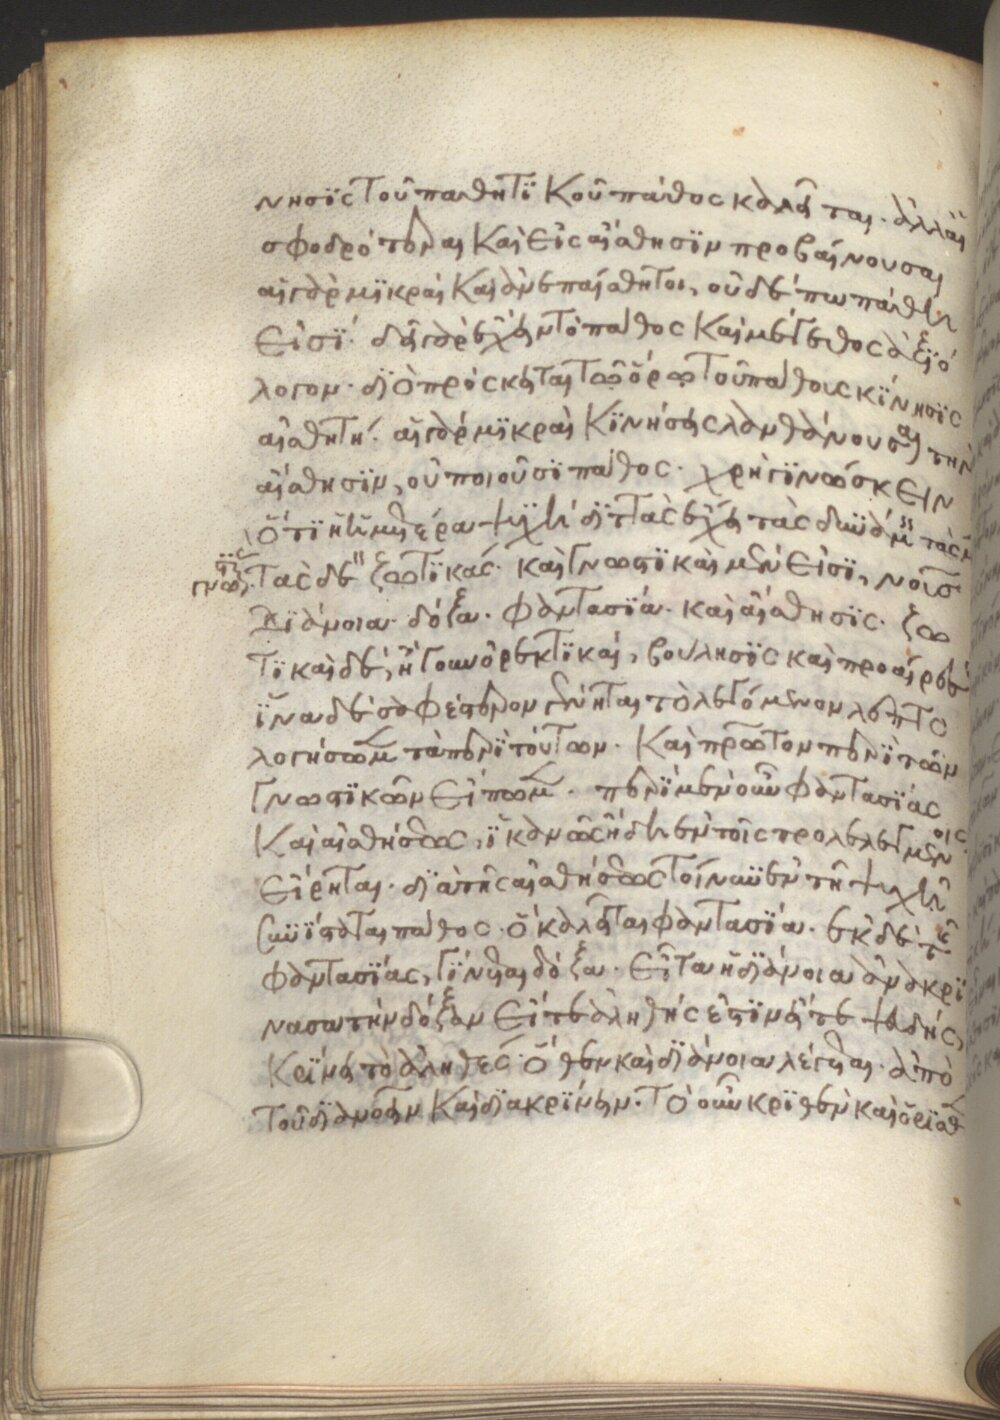 νησις τοῦ παθητικοῦ πάθος καλεῖται· ἀλλ' αἱ
σφοδρότεραι καὶ εἰς αἴσθησιν προβαίνουσαι
αἱ γὰρ μικραὶ καὶ ἀνεπαίσθητοι, οὐδέπω πάθη
εἰσί· δεῖ γὰρ ἔχειν τὸ πάθος καὶ μέγεθος ἀξιό
λογον· διὸ πρόσκειται τῷ ὅρῳ τοῦ πάθους κίνησις
αἰσθητή· αἱ γὰρ μικραὶ κινήσεις λανθάνουσαι τὴν
αἴσθησιν, οὐ ποιοῦσι πάθος· χρὴ γινώσκειν
ὅτι ἡ ἡμετέρα ψυχὴ διττὰς ἔχει τὰς δυνάμεις τὰς μὲν
γνωστικὰς
τὰς δὲ ζωτικάς· καὶ γνωστικαὶ μέν εἰσι, νοῦς
διάνοια· δόξα· φαντασία· καὶ αἴσθησις· ζω
τικαὶ δὲ, ἤγουν ὀρεκτικαί, βούλησις καὶ προαίρεσις
ἵνα δὲ σαφέστερον γένηται τὸ λεγόμενον λεπτο
λογήσωμεν τὰ περὶ τούτων· καὶ πρῶτον περὶ τῶν
γνωστικῶν εἴπωμεν· περὶ μὲν οὖν φαντασίας
καὶ αἰσθήσεως, ἱκανῶς ἤδη ἐν τοῖς προλελεγμένοις
εἴρηται· διὰ τῆς αἰσθήσεως τοίνυν ἐν τῇ ψυχῇ
συνίσταται πάθος· ὃ καλεῖται φαντασία· ἐκ δὲ τῆς
φαντασίας, γίνεται δόξα· εἶτα ἡ διάνοια ἀνακρί
νασα τὴν δόξαν εἴτε ἀληθής ἐστιν εἴτε ψευδής,
κρίνει τὸ ἀληθές· ὅθεν καὶ διάνοια λέγεται· ἀπὸ
τοῦ διανοεῖν καὶ διακρίνειν· τὸ οὖν κριθὲν καὶ ὁρισθὲν